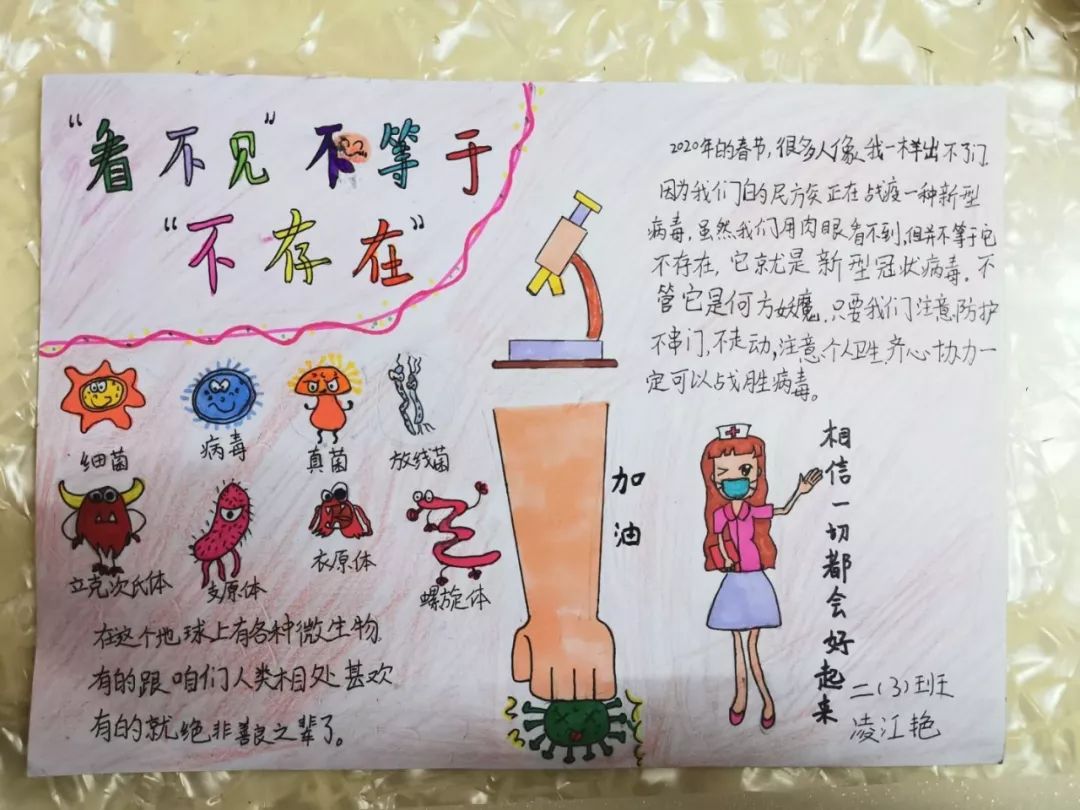 “看不见”不等于
“不存在”
2020年的春节，很多人像我一样出不了门.
因为我们的民族正在战疫一种新型
病毒，虽然我们用肉眼看不到，但并不等于它
不存在，它就是新型冠状病毒。不
管它是何方妖魔，只要我们注意防护
不串门，不走动，注意个人卫生，齐心协力一
定可以战胜病毒。
细菌
病毒
真菌
放线菌
立克次氏体
支原体
衣原体
螺旋体
在这个地球上有各种微生物
有的跟咱们人类相处甚欢
有的就绝非善良之辈了。
加油
相信一切都会好起来
二(3)班
凌江艳